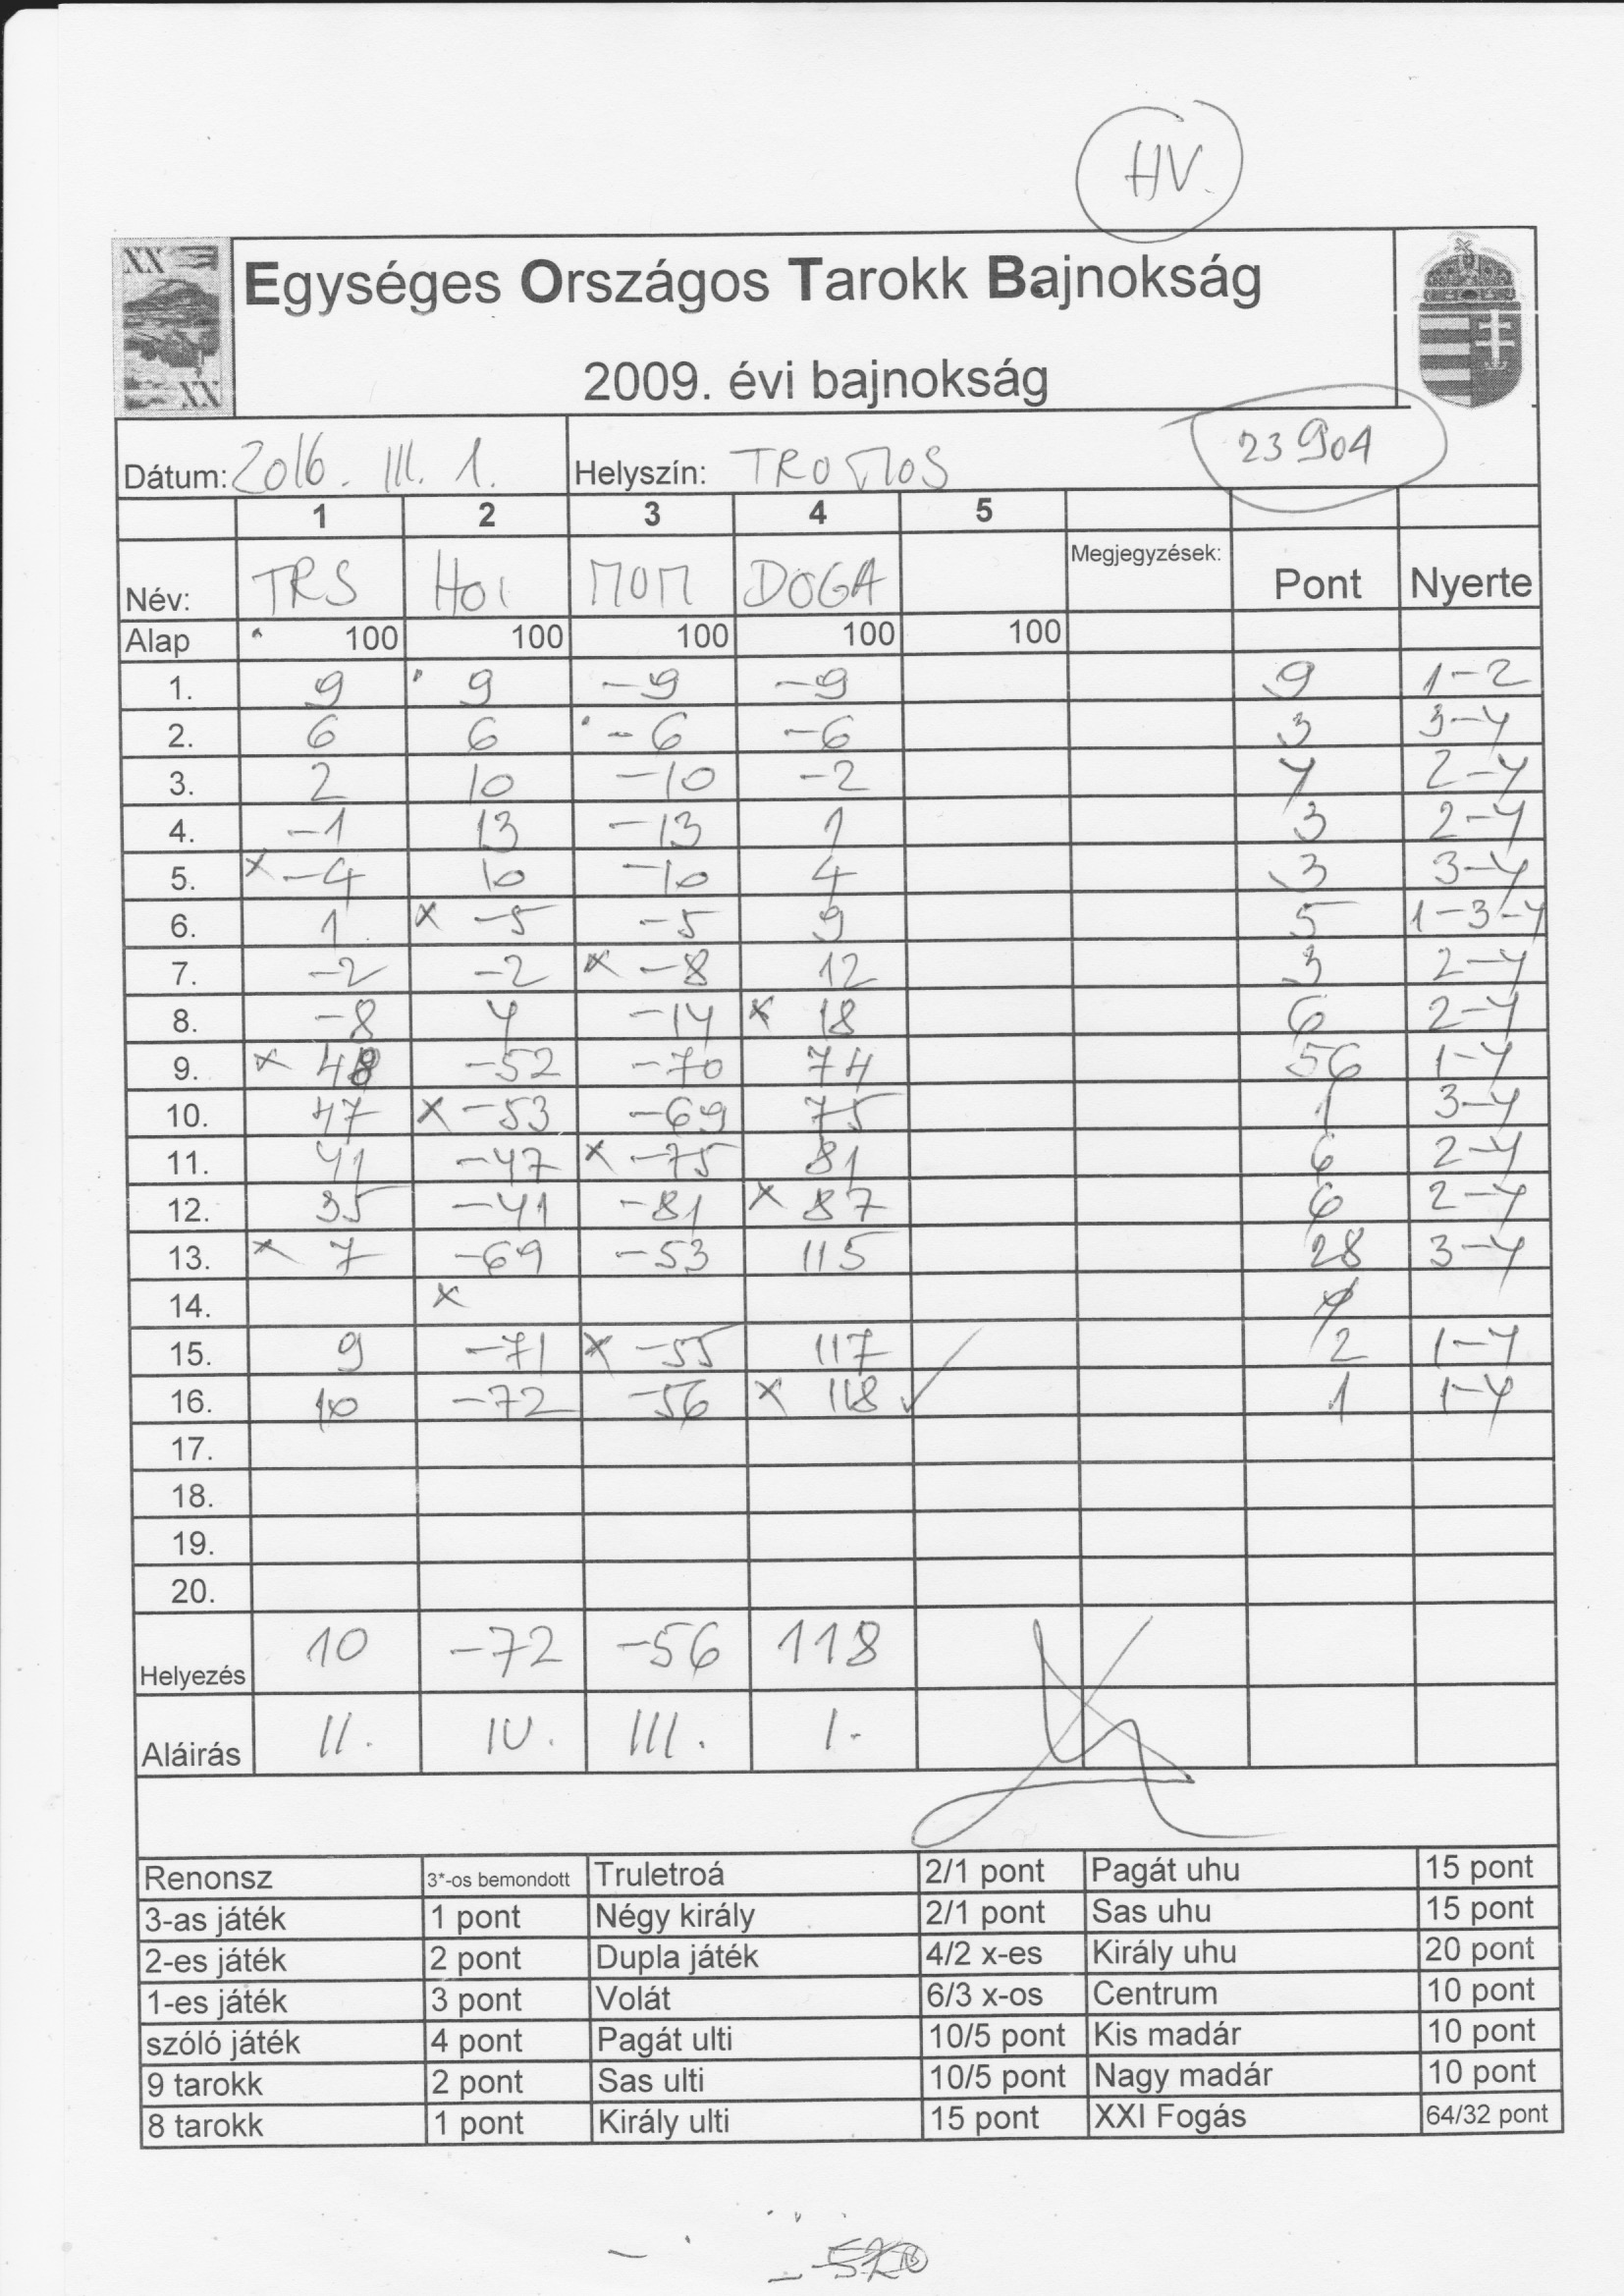 HV.
XX
Egységes Országos Tarokk Bajnokság
2009. évi bajnokság
XX
Dátum: 2016. III. 1. Helyszín: TROMOS 23904
1 2 3 4 5
Név: TRS HOI MOM DOGA Megjegyzések: Pont Nyerte
Alap 100 100 100 100 100
1. 9 9 -9 -9 9 1-2
2. 6 6 -6 -6 3 3-4
3. 2 10 -10 -2 4 2-4
4. -1 13 -13 1 3 2-4
5. x -4 10 -10 4 3 3-4
6. 1 x -5 -5 9 5 1-3-4
7. -2 -2 x -8 12 3 2-4
8. -8 4 -14 x 18 6 2-4
9. x 48 -52 -70 74 56 1-4
10. 47 x -53 -69 75 1 3-4
11. 41 -47 x -75 81 6 2-4
12. 35 -41 -81 x 87 6 2-4
13. x 7 -69 -53 115 28 3-4
14. x
15. 9 -71 x -55 117 2 1-4
16. 10 -72 -56 x 118 1 1-4
17.
18.
19.
20.
Helyezés 10 -72 -56 118
Aláirás II. IV. III. I.
Renonsz 3*-os bemondott Truletroá 2/1 pont Pagát uhu 15 pont
3-as játék 1 pont Négy király 2/1 pont Sas uhu 15 pont
2-es játék 2 pont Dupla játék 4/2 x-es Király uhu 20 pont
1-es játék 3 pont Volát 6/3 x-os Centrum 10 pont
szóló játék 4 pont Pagát ulti 10/5 pont Kis madár 10 pont
9 tarokk 2 pont Sas ulti 10/5 pont Nagy madár 10 pont
8 tarokk 1 pont Király ulti 15 pont XXI Fogás 64/32 pont